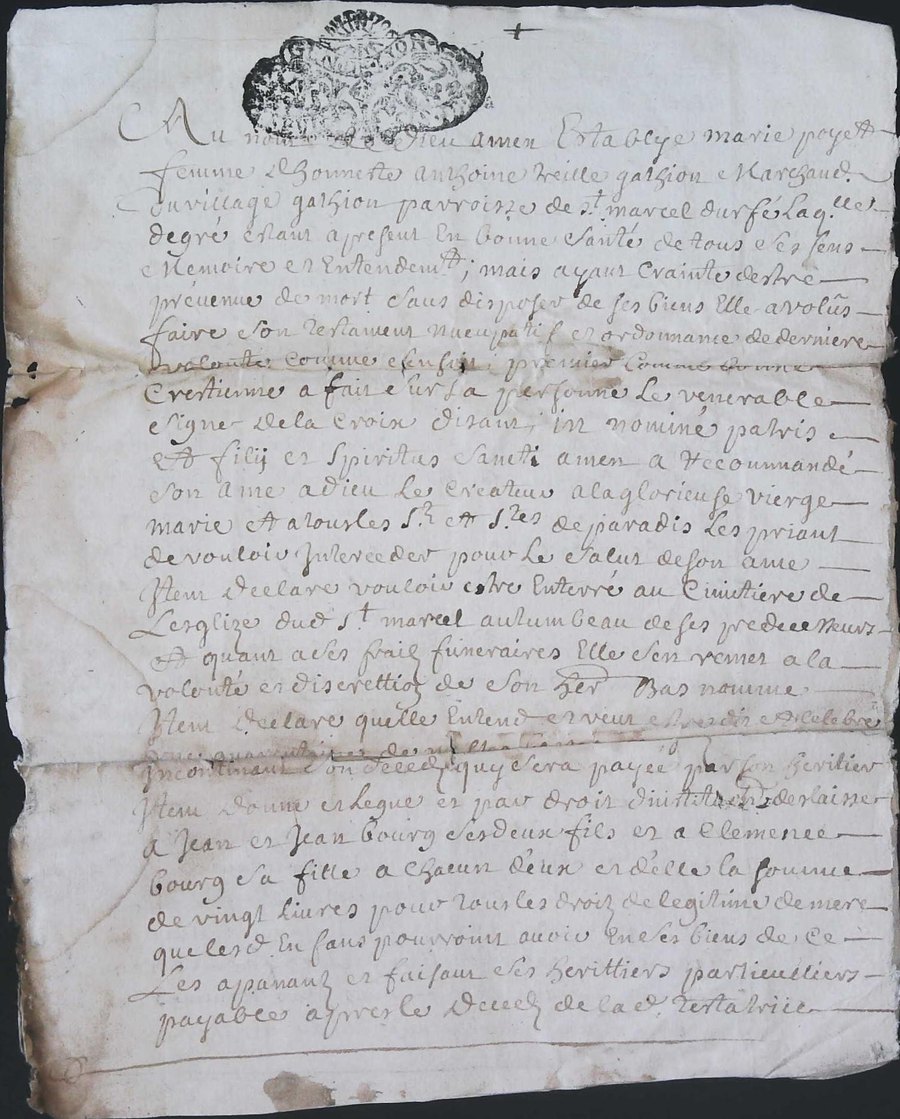 Au nom de dieu amen Establye marie poyet
femme dhonneste anthoine treille gathion Marchand
du village gathion parroisse de st marcel durfé Laqlle
degré estant apresent En bonne santé de tous ses sens
Memoire et Entendemt; mais ayant Crainte destre
prévenue de mort sans disposer de ses biens Elle a volu
faire son testament nuncupatif et ordonnance de derniere
volonté comme sensuit, premier comme bonne
Crestienne a fait sur sa personne le venerable
signe de la Croix disant, in nominé patris
et filij et spiritus sancti amen a recommandé
son ame a dieu le Createur a la glorieuse vierge
marie et a tous les sts et stes de paradis les priant
de vouloir Interceder pour le salut de son ame
Item declare vouloir estre Enterré au Cimitiere de
Lesglize dud st marcel au tumbeau de ses predecesseurs
et quant a ses fraiz funeraires Elle sen remet a la
volonté et discrettion de son her bas nomme
Item declare quelle Entend et veut estre dit et celebre
de
Incontinant son decedz quy sera payéé par son heritier
Item donne et legue et par droit dinstituon delaisse
a Jean et Jean bourg ses deux fils et a Clemence
bourg sa fille a chacun déux et délle la somme
de vingt livres pour tous les droitz de legitime de mere
que lesd Enfans pourroint avoir En ses biens de ce
Les apanant et faisant ses herittiers particulliers
payable apres le decedz de lad testatrice